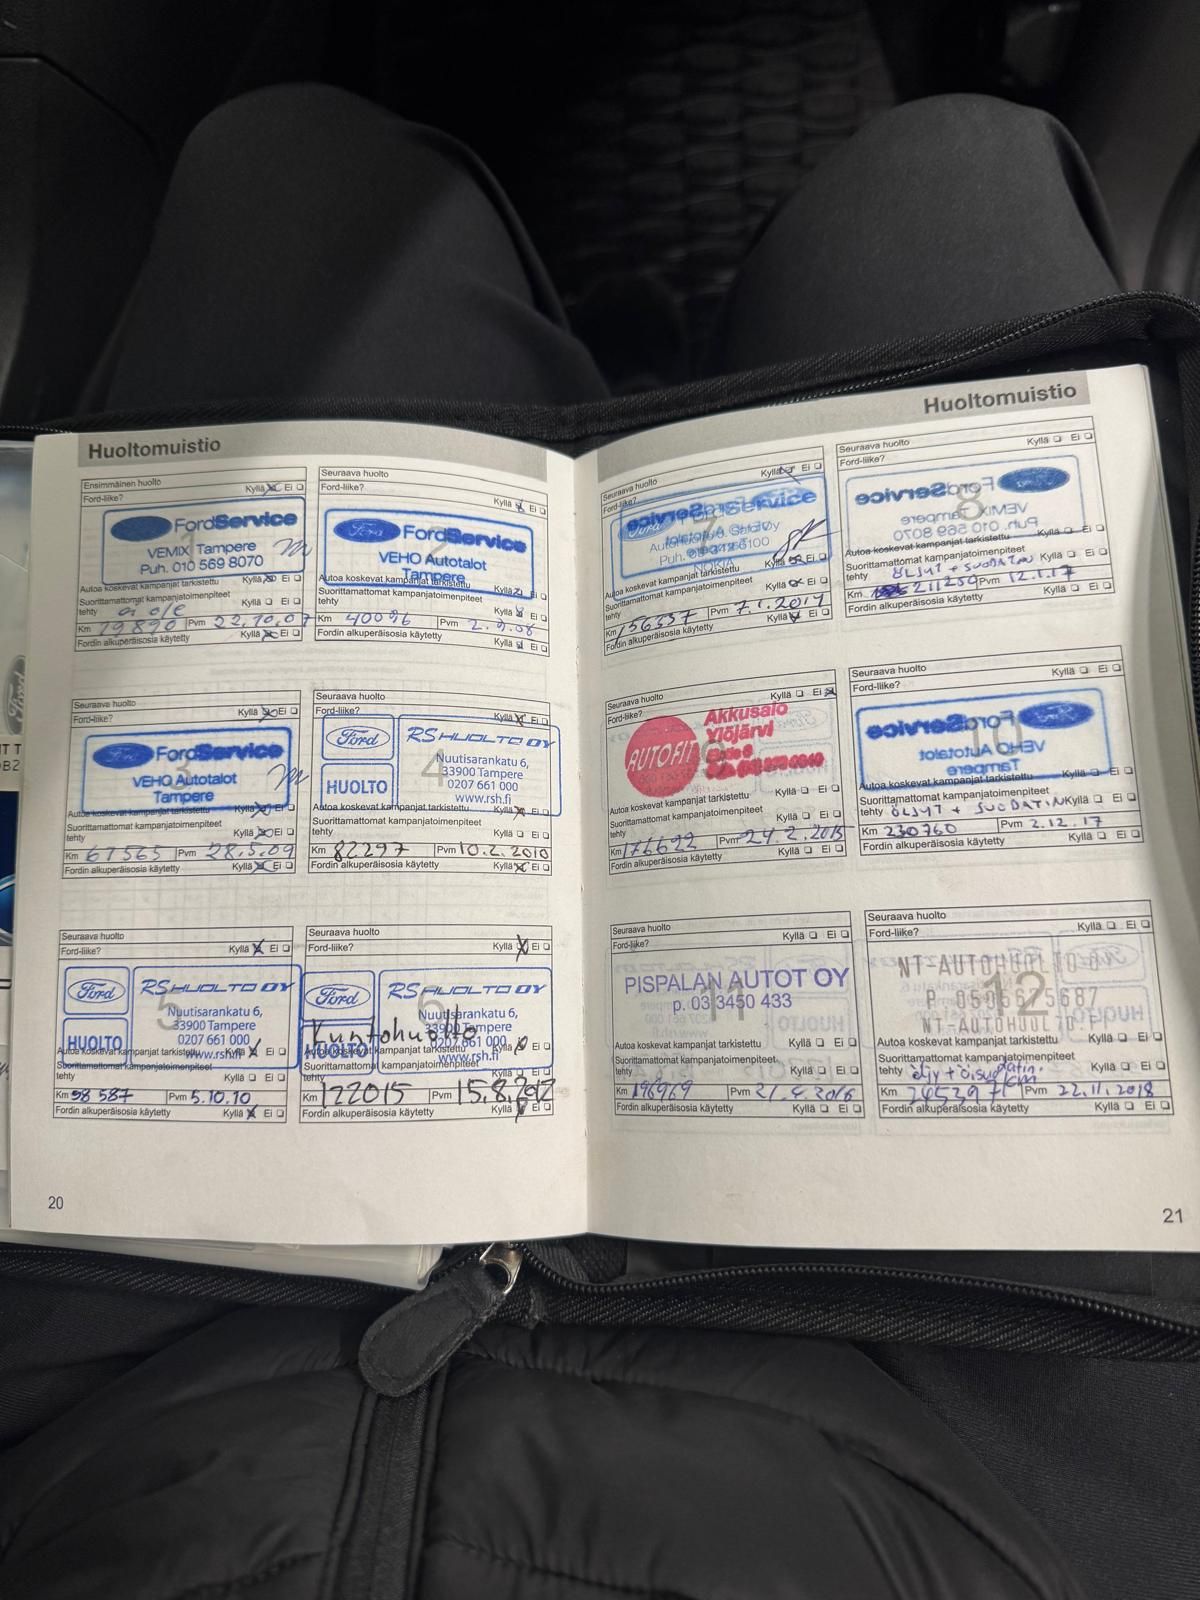 Huoltomuistio
Ensimmäinen huolto
Ford-liike? Kyllä Ei
FordService
VEMIX Tampere
Puh. 010 569 8070
Autoa koskevat kampanjat tarkistettu Kyllä Ei
Suorittamattomat kampanjatoimenpiteet
tehty Kyllä Ei
Km 19890 Pvm 22.10.07
Fordin alkuperäisosia käytetty Kyllä Ei
Seuraava huolto
Ford-liike? Kyllä
2
Ford FordService
VEHO Autotalot
Tampere
Autoa koskevat kampanjat tarkistettu Kyllä
Suorittamattomat kampanjatoimenpiteet
tehty Kyllä
Km 40096 Pvm 2.9.08
Fordin alkuperäisosia käytetty Kyllä
Seuraava huolto
Ford-liike? Kyllä Ei
3
FordService
VEHO Autotalot
Tampere
Autoa koskevat kampanjat tarkistettu Kyllä Ei
Suorittamattomat kampanjatoimenpiteet
tehty Kyllä Ei
Km 67565 Pvm 28.5.09
Fordin alkuperäisosia käytetty Kyllä Ei
Seuraava huolto
Ford-liike? Kyllä Ei
4
Ford RS HUOLTO OY
HUOLTO
Nuutisarankatu 6,
33900 Tampere
0207 661 000
www.rsh.fi
Autoa koskevat kampanjat tarkistettu Kyllä Ei
Suorittamattomat kampanjatoimenpiteet
tehty Kyllä Ei
Km 82297 Pvm 10.2.2010
Fordin alkuperäisosia käytetty Kyllä Ei
Seuraava huolto
Ford-liike? Kyllä Ei
5
Ford RS HUOLTO OY
HUOLTO
Nuutisarankatu 6,
33900 Tampere
0207 661 000
www.rsh.fi
Autoa koskevat kampanjat tarkistettu Kyllä Ei
Suorittamattomat kampanjatoimenpiteet
tehty Kyllä Ei
Km 98 587 Pvm 5.10.10
Fordin alkuperäisosia käytetty Kyllä Ei
Seuraava huolto
Ford-liike? Kyllä Ei
6
Ford RS HUOLTO OY
HUOLTO
Nuutisarankatu 6,
33900 Tampere
0207 661 000
www.rsh.fi
Kuntohuolto
Autoa koskevat kampanjat tarkistettu Kyllä Ei
Suorittamattomat kampanjatoimenpiteet
tehty Kyllä Ei
Km 122015 Pvm 15.8.2012
Fordin alkuperäisosia käytetty Kyllä Ei
20
Huoltomuistio
Seuraava huolto
Ford-liike? Kyllä Ei
7
Ford FordService
NOKIA
Autoa koskevat kampanjat tarkistettu Kyllä Ei
Suorittamattomat kampanjatoimenpiteet
tehty Kyllä Ei
Km 156337 Pvm 7.1.2014
Fordin alkuperäisosia käytetty Kyllä Ei
Seuraava huolto
Ford-liike? Kyllä Ei
8
FordService
VEMIX Tampere
Puh. 010 569 8070
Autoa koskevat kampanjat tarkistettu Kyllä Ei
Suorittamattomat kampanjatoimenpiteet
tehty ÖLJYT + SUODATIN Kyllä Ei
Km 211250 Pvm 12.1.17
Fordin alkuperäisosia käytetty Kyllä Ei
Seuraava huolto
Ford-liike? Kyllä Ei
9
AUTOFIT
Akkusalo
Ylöjärvi
Autoa koskevat kampanjat tarkistettu Kyllä Ei
Suorittamattomat kampanjatoimenpiteet
tehty Kyllä Ei
Km 176622 Pvm 24.2.2015
Fordin alkuperäisosia käytetty Kyllä Ei
Seuraava huolto
Ford-liike? Kyllä Ei
10
FordService
VEHO Autotalot
Tampere
Autoa koskevat kampanjat tarkistettu Kyllä Ei
Suorittamattomat kampanjatoimenpiteet
tehty ÖLJYT + SUODATIN Kyllä Ei
Km 230760 Pvm 2.12.17
Fordin alkuperäisosia käytetty Kyllä Ei
Seuraava huolto
Ford-liike? Kyllä Ei
11
PISPALAN AUTOT OY
p. 03 3450 433
Autoa koskevat kampanjat tarkistettu Kyllä Ei
Suorittamattomat kampanjatoimenpiteet
tehty Kyllä Ei
Km 196969 Pvm 21.4.2016
Fordin alkuperäisosia käytetty Kyllä Ei
Seuraava huolto
Ford-liike? Kyllä Ei
12
NT-AUTOHUOLTO OY
P 0505675687
Autoa koskevat kampanjat tarkistettu Kyllä Ei
Suorittamattomat kampanjatoimenpiteet
tehty öljy + öisuodatin Kyllä Ei
Km 245397 Pvm 22.11.2018
Fordin alkuperäisosia käytetty Kyllä Ei
21